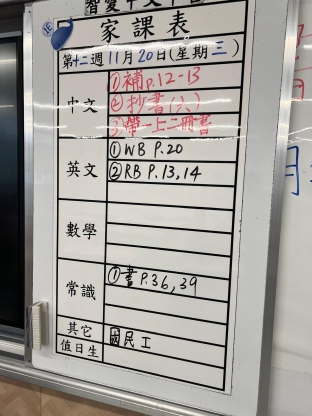 家課表
1E
第十二週 11月20日(星期三)
中文
①補p.12-13
②抄書(六)
③帶一上二冊書
英文
①WB P.20
②RB P.13,14
數學
常識
①書P.36,39
其它
值日生
國民工